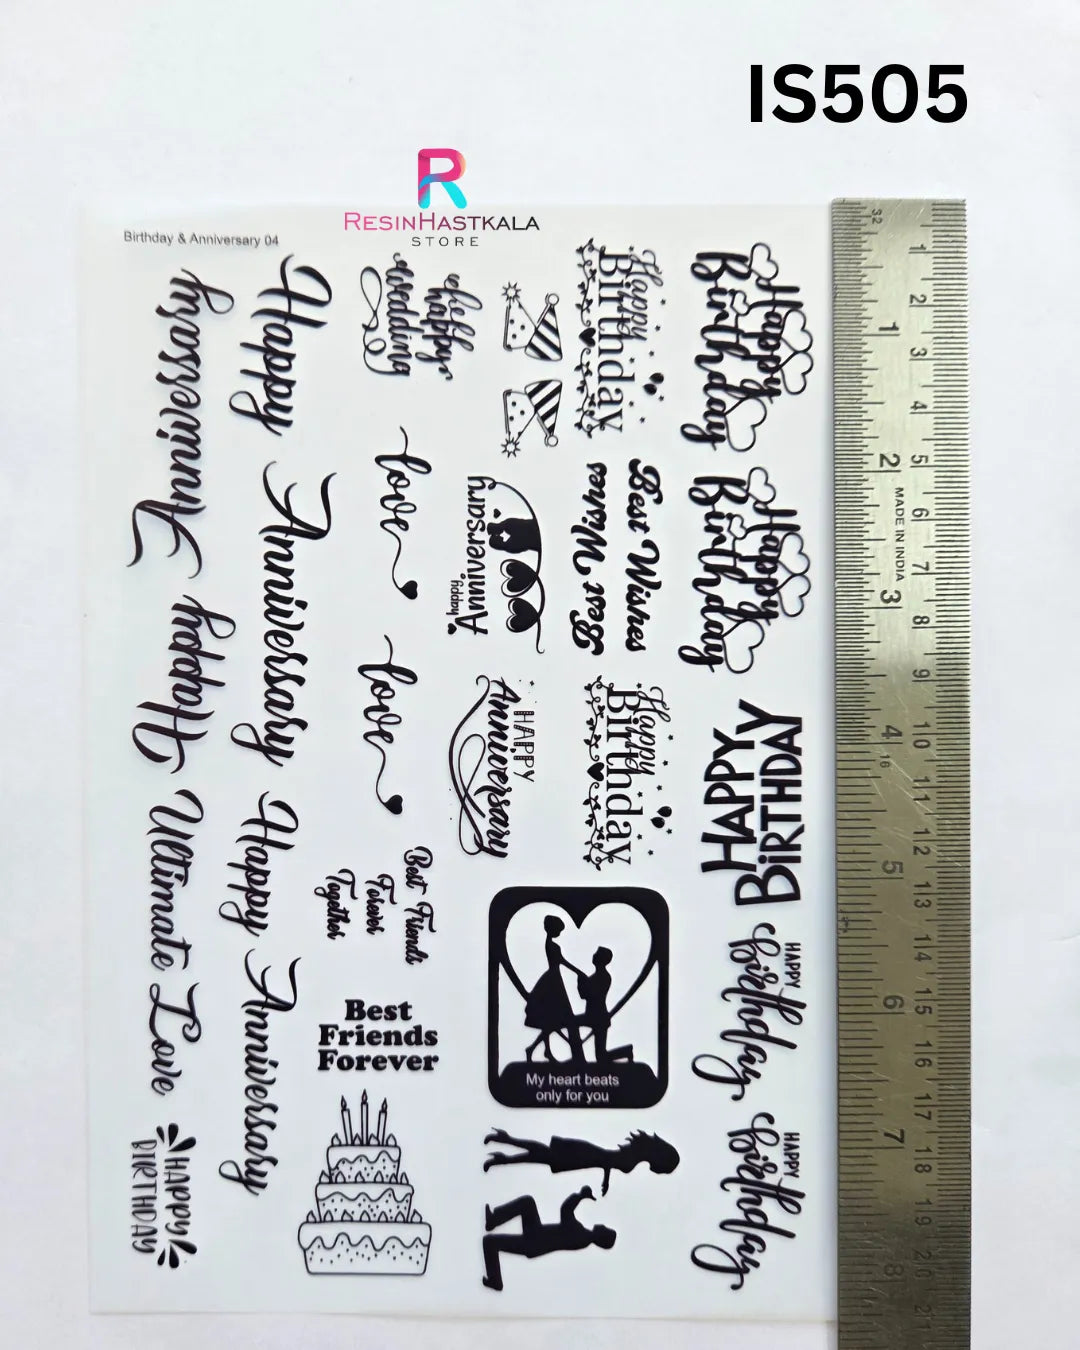 IS505
R
RESINHASTKALA
STORE
Birthday & Anniversary 04
Happy Anniversary
Happy Anniversary
Happy Anniversary
Ultimate Love
HAPPY
BIRTHDAY
wedding
happy
love
love
Best Friends
Forever
Together
Best
Friends
Forever
Happy
Anniversary
HAPPY
Anniversary
My heart beats
only for you
Happy
Birthday
Best Wishes
Best Wishes
Happy
Birthday
Happy
Birthday
Happy
Birthday
HAPPY
BIRTHDAY
HAPPY
birthday
HAPPY
birthday
32
1 2 3 4 5 6 7 8
MADE IN INDIA
16
1 2 3 4 5 6 7 8 9 10 11 12 13 14 15 16 17 18 19 20 21